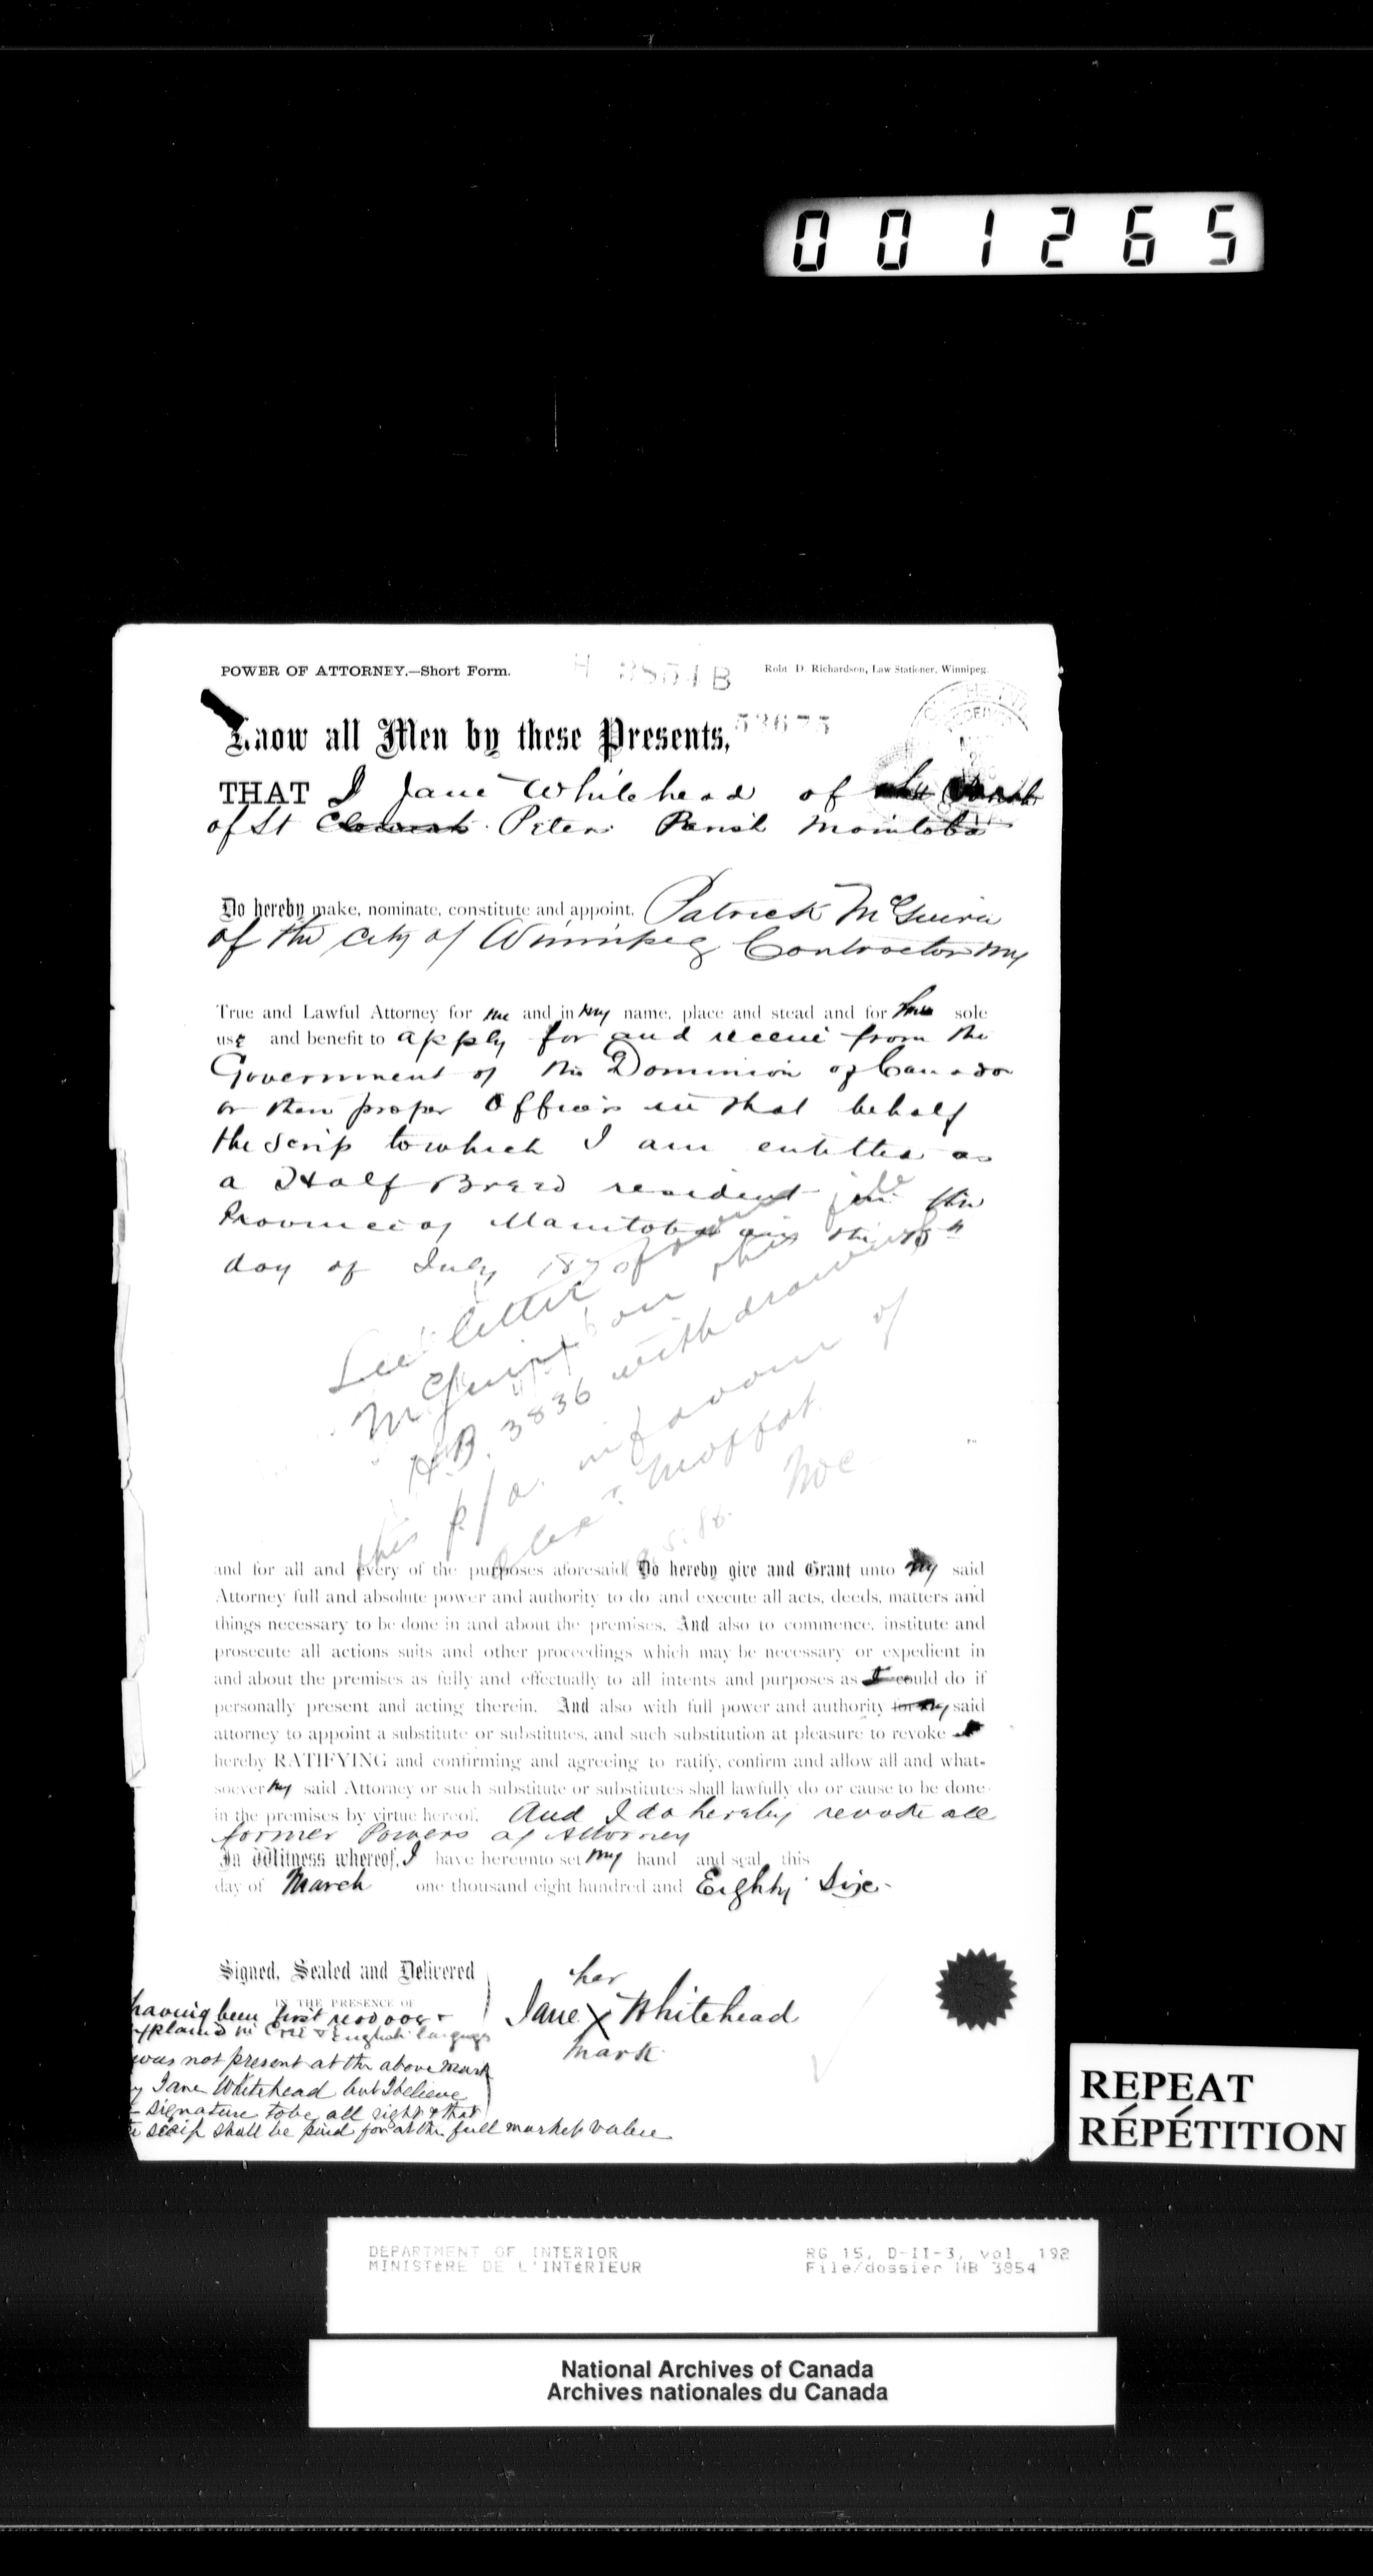 001265
POWER OF ATTORNEY.—Short Form.
H 3854 B
Robt D. Richardson, Law Stationer, Winnipeg.
Know all Men by these Presents,
53675
THAT I Jane Whitehead of
of St Peters Parish Manitoba
Do hereby make, nominate, constitute and appoint, Patrick McGuire
of the City of Winnipeg Contractor my
True and Lawful Attorney for me and in my name, place and stead and for sole
use and benefit to apply for and receive from the
Government of the Dominion of Canada
or their proper Officers in that behalf
the scrip to which I am entitled as
a Half Breed resident in the
Province of Manitoba on the 15th
day of July 1870
See letter
McGuire on
H.B. 3836 withdrawing
this p/a. in favour of
Alexr. Moffat.
and for all and every of the purposes aforesaid Do hereby give and Grant unto my said
Attorney full and absolute power and authority to do and execute all acts, deeds, matters and
things necessary to be done in and about the premises, And also to commence, institute and
prosecute all actions suits and other proceedings which may be necessary or expedient in
and about the premises as fully and effectually to all intents and purposes as I could do if
personally present and acting therein. And also with full power and authority for my said
attorney to appoint a substitute or substitutes, and such substitution at pleasure to revoke
hereby RATIFYING and confirming and agreeing to ratify, confirm and allow all and what-
soever my said Attorney or such substitute or substitutes shall lawfully do or cause to be done
in the premises by virtue hereof. And I do hereby revoke all
former Powers of Attorney
In Witness whereof, I have hereunto set my hand and seal this
day of March one thousand eight hundred and Eighty Six
Signed, Sealed and Delivered
IN THE PRESENCE OF
having been first read over &
explained in Cree & English languages
was not present at the above mark
Jane Whitehead but I believe
signature to be all right & that
scrip shall be paid for at the full market value
her
Jane X Whitehead
mark
REPEAT
RÉPÉTITION
DEPARTMENT OF INTERIOR
MINISTÈRE DE L'INTÉRIEUR
RG 15, D-II-3, vol 192
File/dossier HB 3854
National Archives of Canada
Archives nationales du Canada